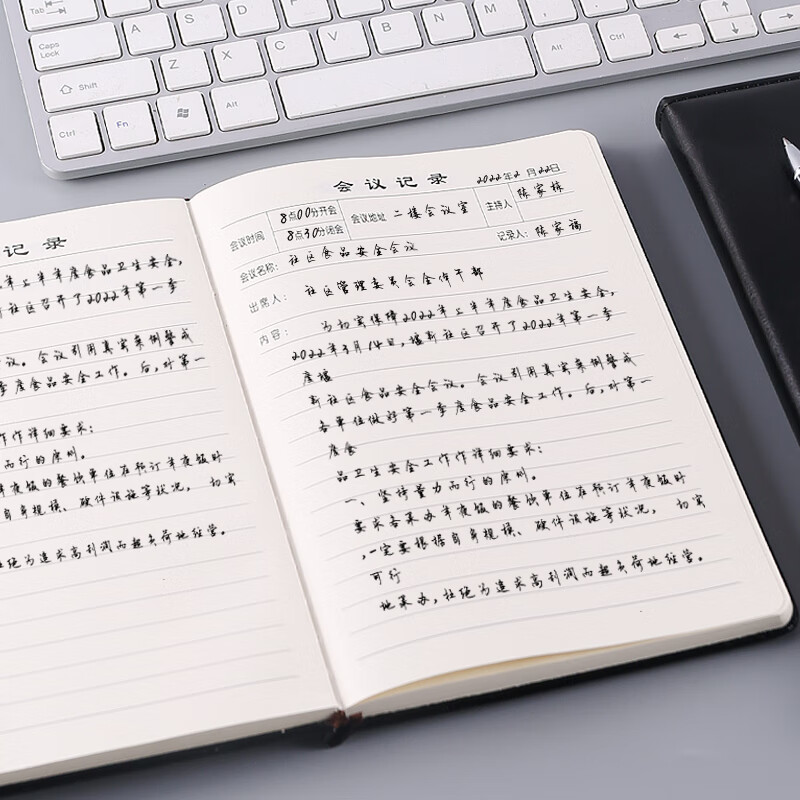 Tab
Caps Lock
A
S
D
F
Shift
Z
X
C
V
B
N
M
Ctrl
Fn
Alt
Alt
Ctrl
记录
年上半年度食品卫生安全,
社区召开了2022年第一季
议。会议引用真实案例警戒
季度食品安全工作。后,对第一
作作详细要求:
而行的原则。
年夜饭的餐饮单位在预订年夜饭时
自身规模、硬件设施等状况, 切实
杜绝为追求高利润而超负荷地经营。
会议记录
2022年2月22日
会议时间
8点00分开会
8点30分闭会
会议地址 二楼会议室
主持人 陈家栋
会议名称: 社区食品安全会议
记录人: 陈家福
出席人: 社区管理委员会全体干部
内容: 为切实保障2022年上半年度食品卫生安全,
2022年3月14日,墟新社区召开了2022年第一季
度墟
新社区食品安全会议。会议引用真实案例警戒
各单位做好第一季度食品安全工作。后,对第一
度食
品卫生安全工作作详细要求:
一、坚持量力而行的原则。
要求各承办年夜饭的餐饮单位在预订年夜饭时
,一定要根据自身规模、硬件设施等状况, 切实
可行
地承办,杜绝为追求高利润而超负荷地经营。